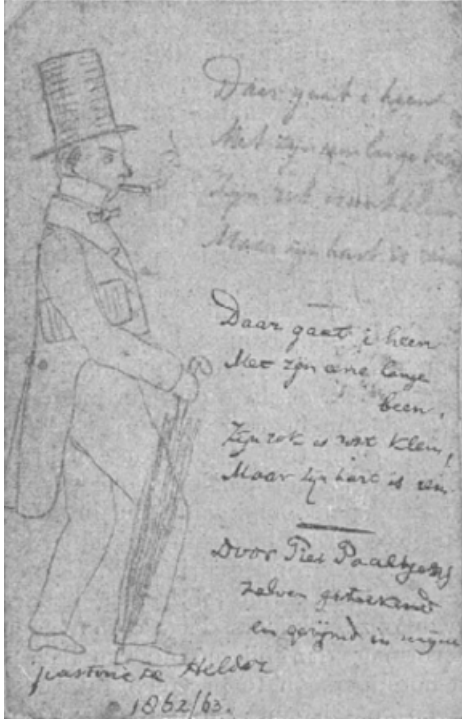 Daar gaat i heen
Met zijn eene lange been
Zijn rok is wat klein
Maar zijn hart is rein
Daar gaat i heen
Met zijn eene lange
been,
Zijn rok is wat klein,
Maar zijn hart is rein
Door Piet Paaltjens
zelven geteekend
en gerijmd in mijne
pastorie te Helder
1862/63.